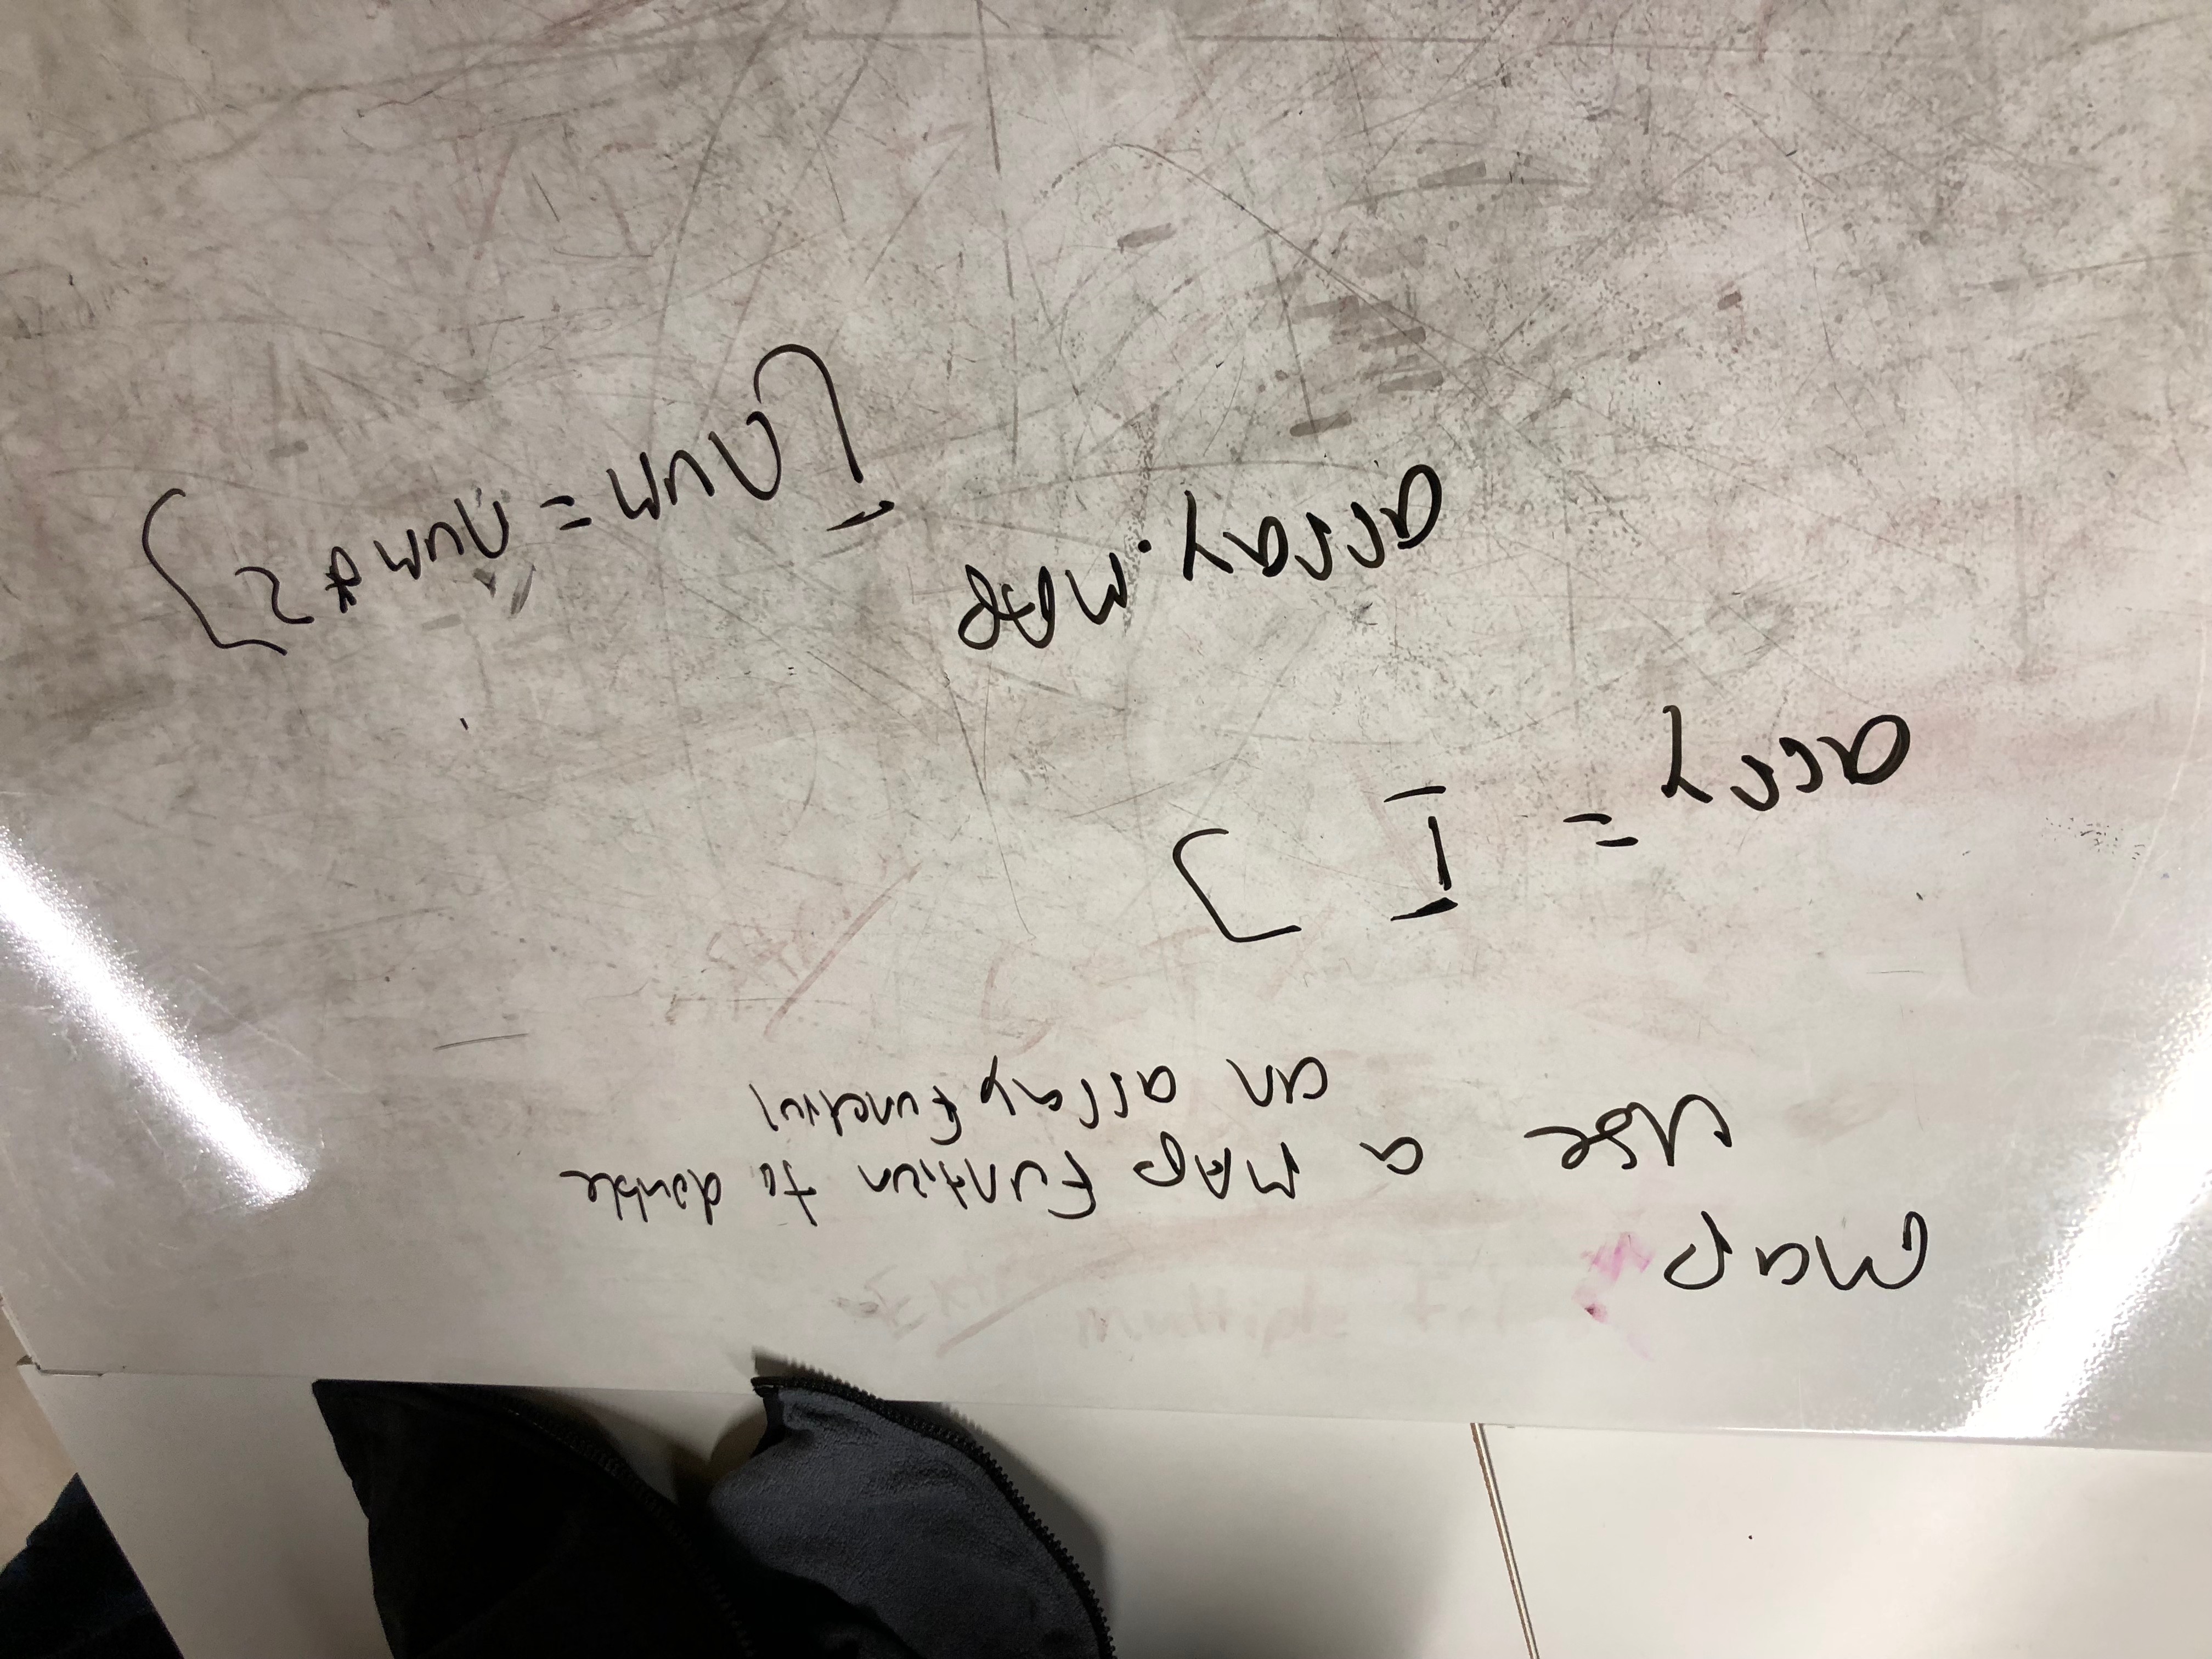 Map
Use a MAP Funtion to double
an array Function
arry = [ ]
array.MAP [num = num * 2]